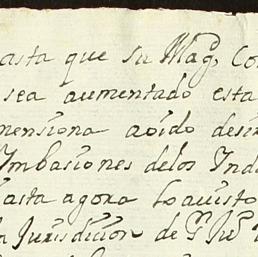 asta que su Mag, Co
sea aumentado esta
mensiona aoido desi
Imbasiones delos Ind
asta agora loavisto
a Jurisdicion de